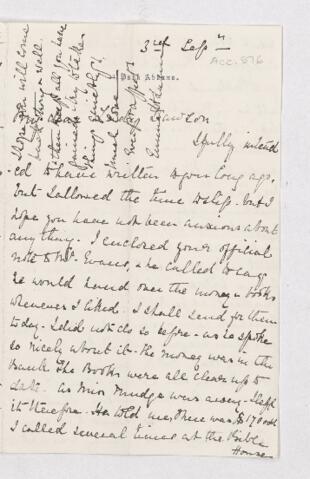 ACC. 876
3rd Sep
My dear Lady Lawson
I fully intend
ed to have written to you long ago.
but I allowed the time to slip. but I
hope you have not been anxious about
any thing. I enclosed your official
note to Mr. Evans, & he called to say
he would hand over the money & books
whenever I liked. I shall send for them
today. I did not do so before as he spoke
so nicely about it. The money was in the
Bank The Books were all clear up to
date. as Miss Mudge was away I left
it therefore. He told me there was $ 170
I called several times at the Bible
House
I hope you will come
back strong & well.
much love
Ever your